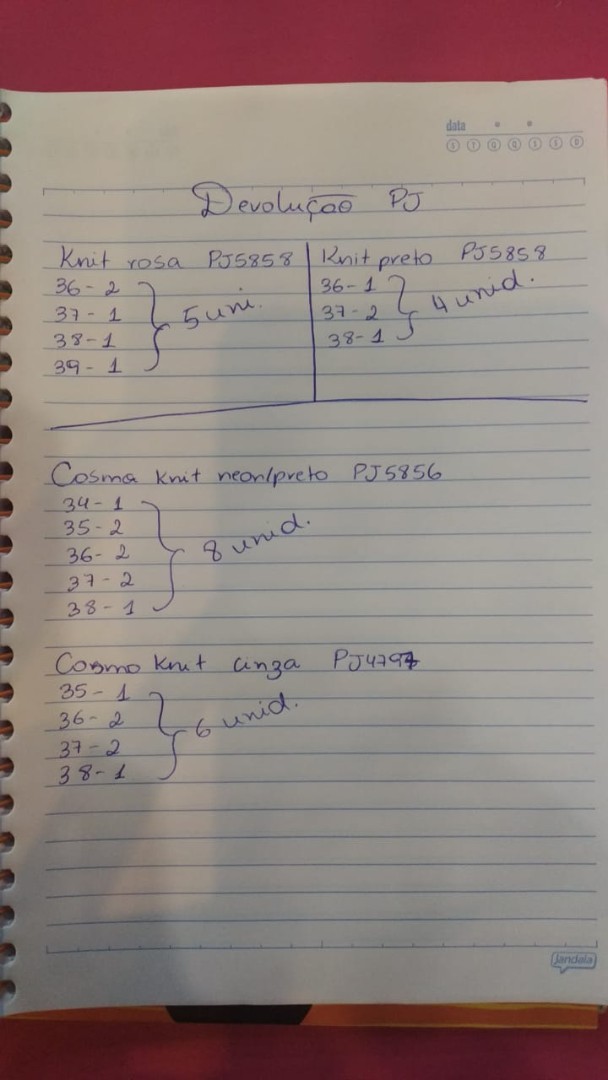 data
S T Q Q S S D
Devolução PJ
Knit rosa PJ5858
36 - 2
37 - 1
38 - 1
39 - 1
5 uni.
Knit preto PJ5858
36 - 1
37 - 2
38 - 1
4 unid.
Cosma Knit neon/preto PJ5856
34 - 1
35 - 2
36 - 2
37 - 2
38 - 1
8 unid.
Cosmo Knit cinza PJ4797
35 - 1
36 - 2
37 - 2
38 - 1
6 unid.
jandaia